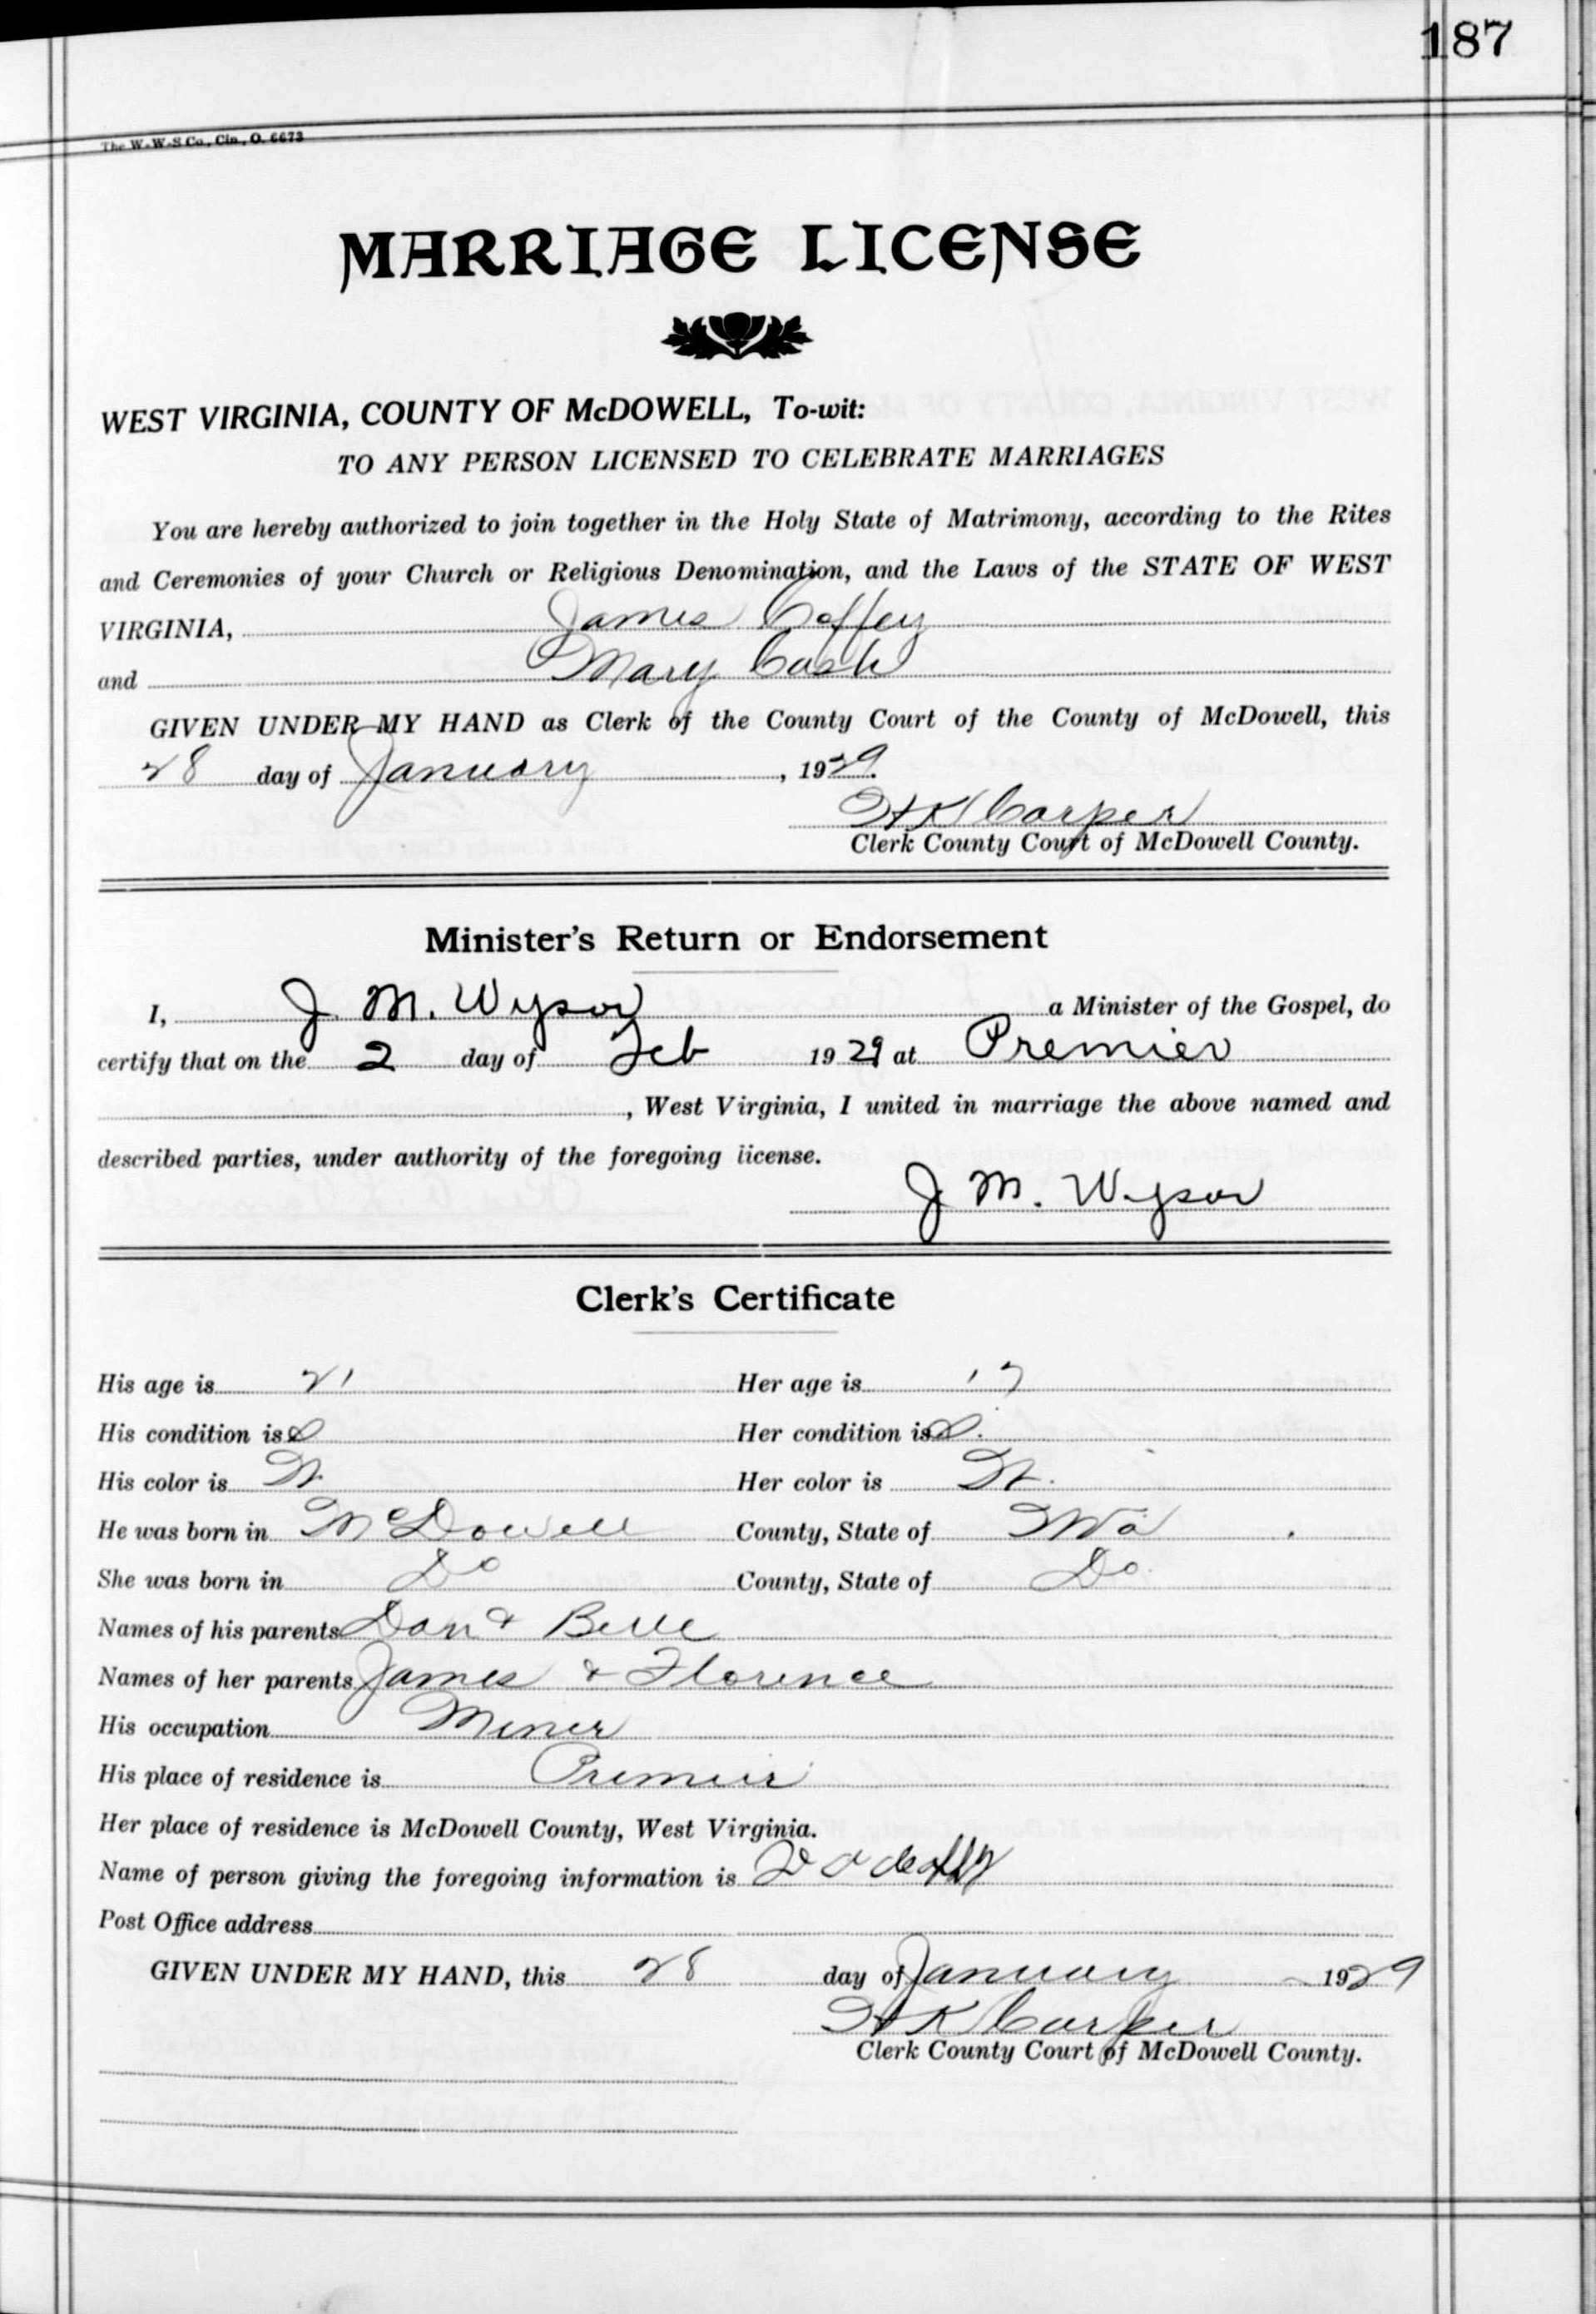 187
The W.-W.-S Co., Cin., O. 6673
MARRIAGE LICENSE
WEST VIRGINIA, COUNTY OF McDOWELL, To-wit:
TO ANY PERSON LICENSED TO CELEBRATE MARRIAGES
You are hereby authorized to join together in the Holy State of Matrimony, according to the Rites
and Ceremonies of your Church or Religious Denomination, and the Laws of the STATE OF WEST
VIRGINIA, James Coffey
and Mary Cash
GIVEN UNDER MY HAND as Clerk of the County Court of the County of McDowell, this
28 day of January, 1929.
Carper
Clerk County Court of McDowell County.
Minister's Return or Endorsement
I, J. M. Wysor a Minister of the Gospel, do
certify that on the 2 day of Feb 1929 at Premier
, West Virginia, I united in marriage the above named and
described parties, under authority of the foregoing license.
J M. Wysor
Clerk's Certificate
His age is 21 Her age is 17
His condition is S Her condition is S.
His color is W. Her color is W.
He was born in McDowell County, State of WVa.
She was born in Do County, State of Do.
Names of his parents Dan & Belle
Names of her parents James & Florence
His occupation Miner
His place of residence is Premier
Her place of residence is McDowell County, West Virginia.
Name of person giving the foregoing information is
Post Office address
GIVEN UNDER MY HAND, this 28 day of January 1929
Carper
Clerk County Court of McDowell County.